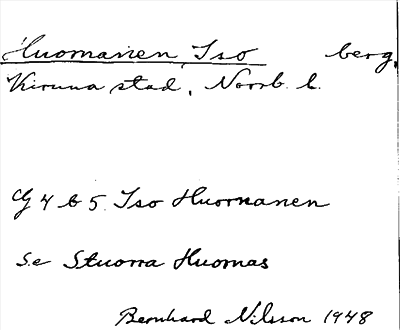 Huomanen, Iso berg,
Kiruna stad, Norrb. l.
Cg 4 b 5. Iso Huornanen
Se Stuorra Huornas
Bernhard Nilsson 1948